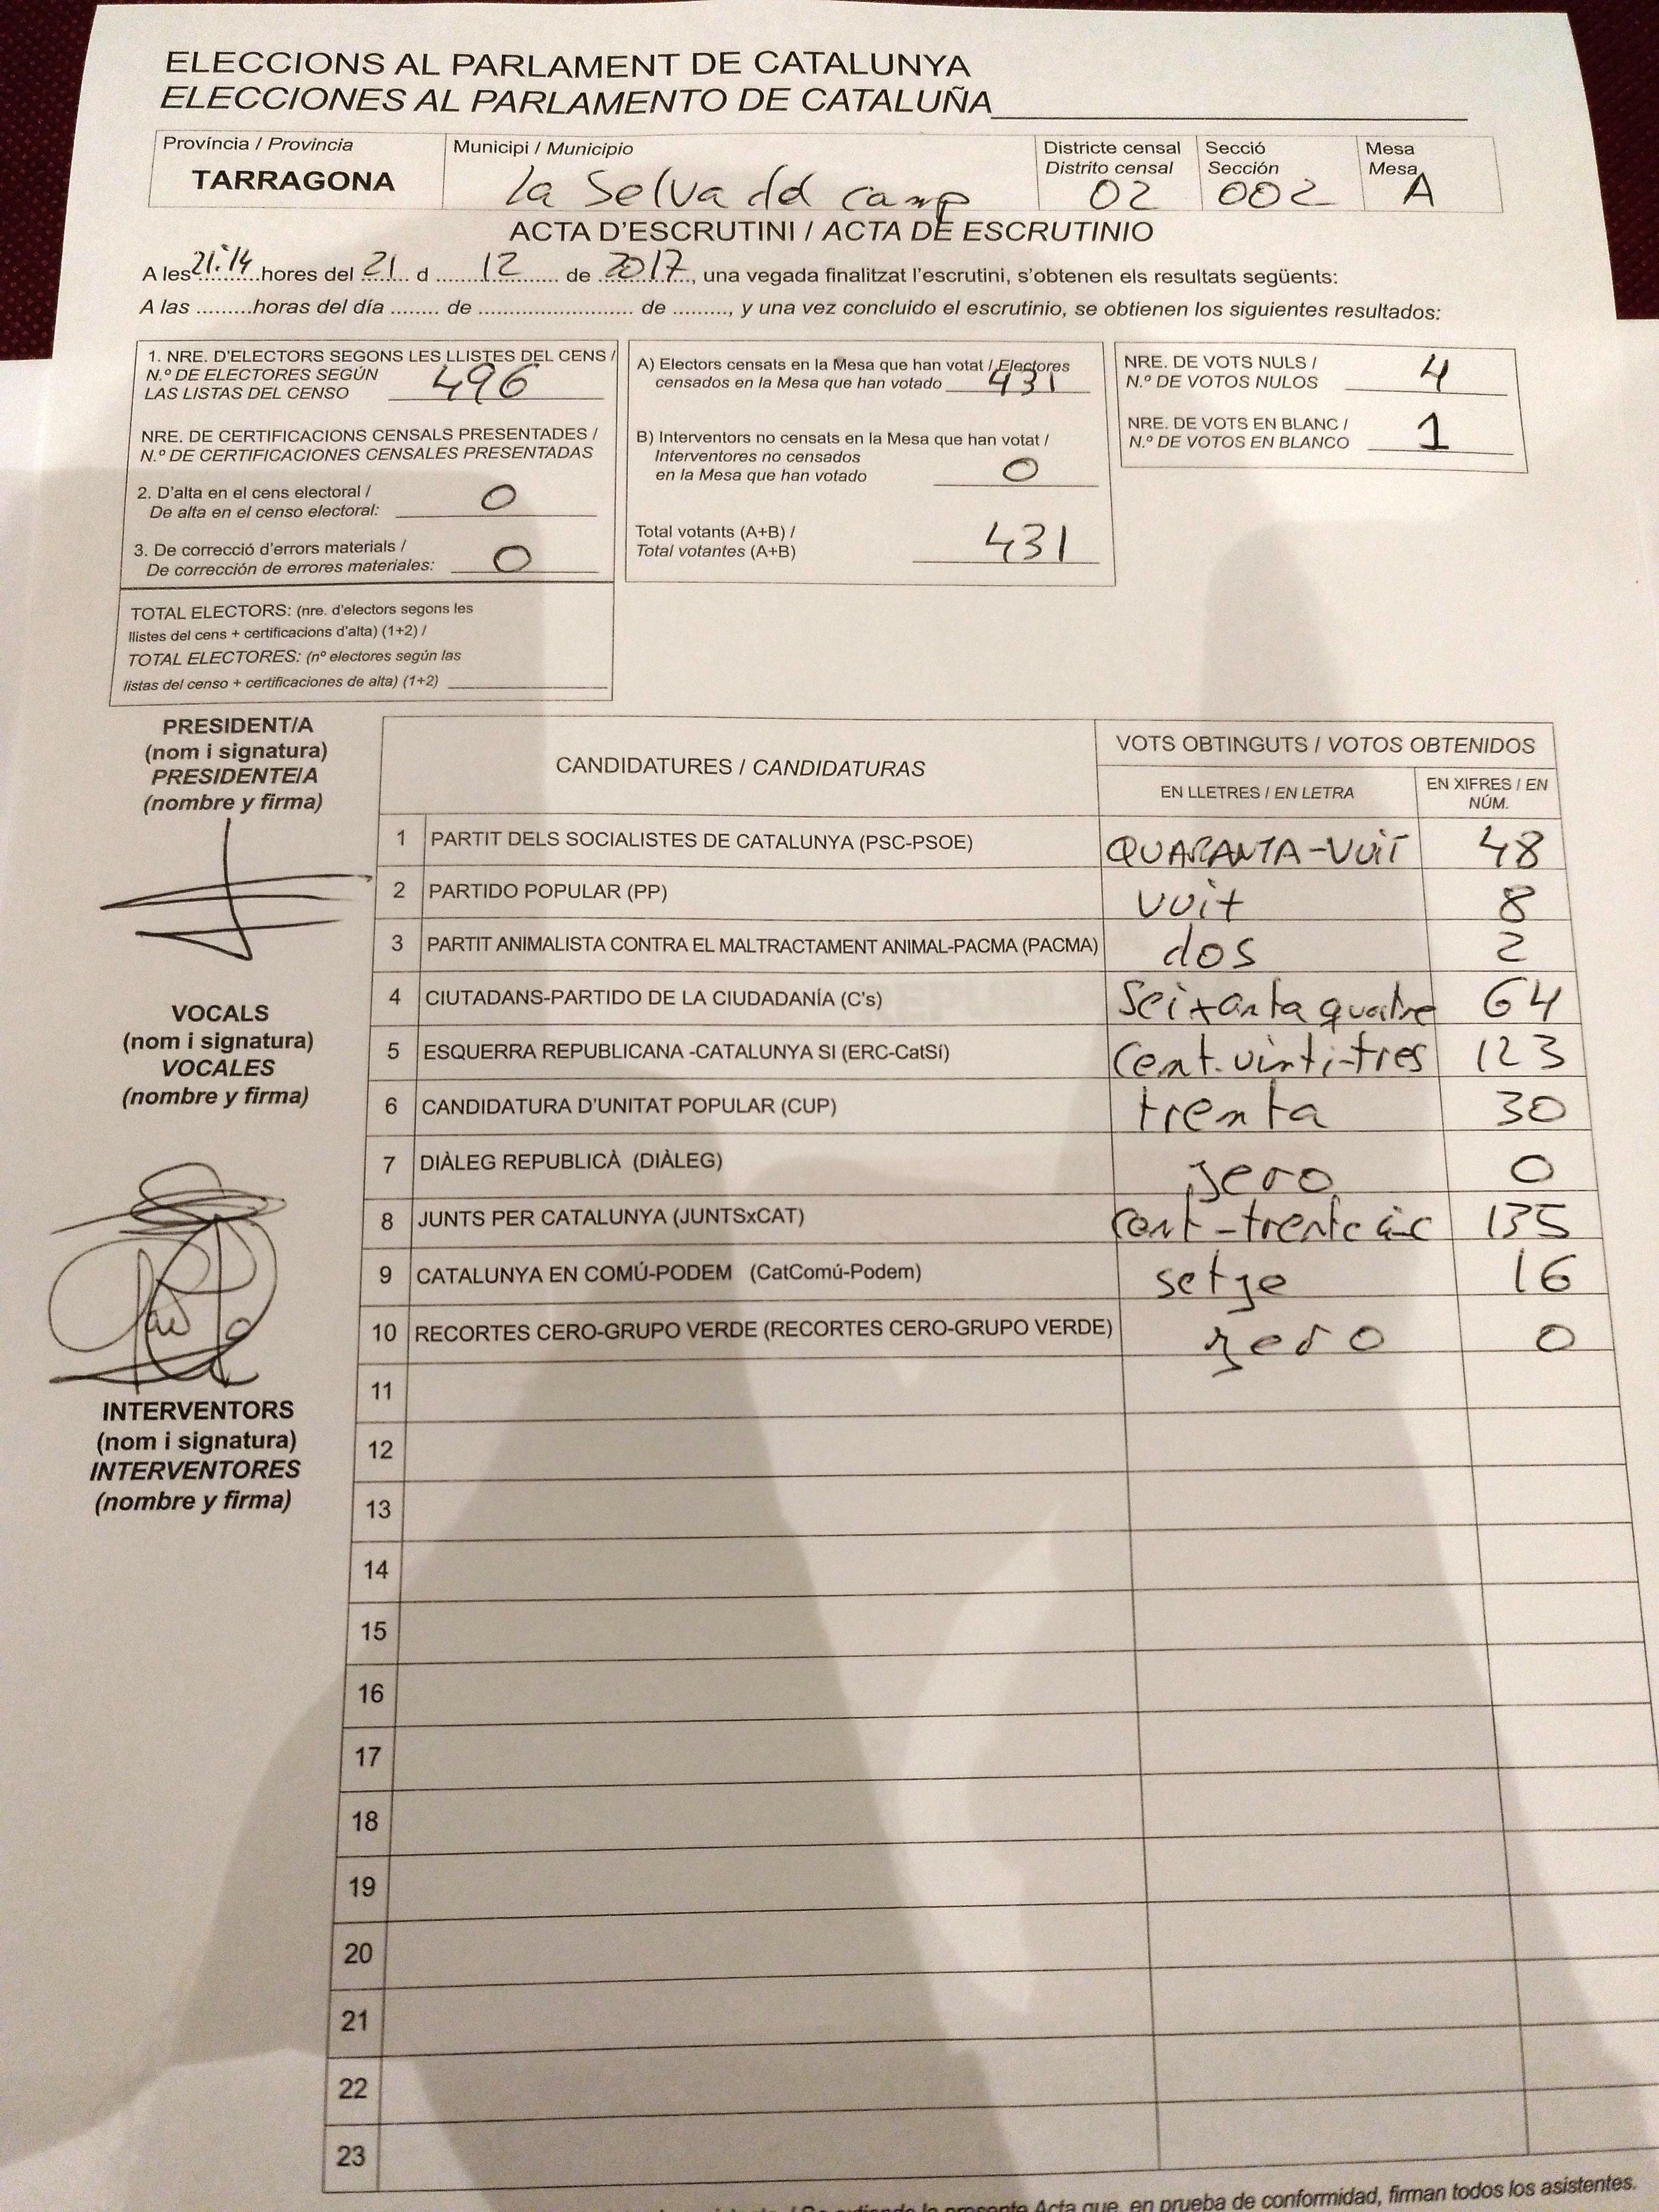 ELECCIONS AL PARLAMENT DE CATALUNYA
ELECCIONES AL PARLAMENTO DE CATALUÑA
Província / Provincia
TARRAGONA
Municipi / Municipio
La Selva del camp
Districte censal
Distrito censal
02
Secció
Sección
002
Mesa
Mesa
A
ACTA D'ESCRUTINI / ACTA DE ESCRUTINIO
A les 21:14 hores del 21 d 12 de 2017, una vegada finalitzat l'escrutini, s'obtenen els resultats següents:
A las .........horas del día ........ de .......................... de ........., y una vez concluido el escrutinio, se obtienen los siguientes resultados:
1. NRE. D'ELECTORS SEGONS LES LLISTES DEL CENS /
N.º DE ELECTORES SEGÚN
LAS LISTAS DEL CENSO 496
NRE. DE CERTIFICACIONS CENSALS PRESENTADES /
N.º DE CERTIFICACIONES CENSALES PRESENTADAS
2. D'alta en el cens electoral /
De alta en el censo electoral: 0
3. De correcció d'errors materials /
De corrección de errores materiales: 0
TOTAL ELECTORS: (nre. d'electors segons les
llistes del cens + certificacions d'alta) (1+2) /
TOTAL ELECTORES: (nº electores según las
listas del censo + certificaciones de alta) (1+2)
A) Electors censats en la Mesa que han votat / Electores
censados en la Mesa que han votado 431
B) Interventors no censats en la Mesa que han votat /
Interventores no censados
en la Mesa que han votado 0
Total votants (A+B) /
Total votantes (A+B) 431
NRE. DE VOTS NULS /
N.º DE VOTOS NULOS 4
NRE. DE VOTS EN BLANC /
N.º DE VOTOS EN BLANCO 1
PRESIDENT/A
(nom i signatura)
PRESIDENTE/A
(nombre y firma)
VOCALS
(nom i signatura)
VOCALES
(nombre y firma)
INTERVENTORS
(nom i signatura)
INTERVENTORES
(nombre y firma)
CANDIDATURES / CANDIDATURAS
VOTS OBTINGUTS / VOTOS OBTENIDOS
EN LLETRES / EN LETRA
EN XIFRES / EN
NÚM.
1 PARTIT DELS SOCIALISTES DE CATALUNYA (PSC-PSOE) QUARANTA-VUIT 48
2 PARTIDO POPULAR (PP) vuit 8
3 PARTIT ANIMALISTA CONTRA EL MALTRACTAMENT ANIMAL-PACMA (PACMA) dos 2
4 CIUTADANS-PARTIDO DE LA CIUDADANÍA (C's) Seixanta quatre 64
5 ESQUERRA REPUBLICANA -CATALUNYA SI (ERC-CatSí) Cent-vint-i-tres 123
6 CANDIDATURA D'UNITAT POPULAR (CUP) trenta 30
7 DIÀLEG REPUBLICÀ (DIÀLEG) zero 0
8 JUNTS PER CATALUNYA (JUNTSxCAT) cent-trenta 135
9 CATALUNYA EN COMÚ-PODEM (CatComú-Podem) setze 16
10 RECORTES CERO-GRUPO VERDE (RECORTES CERO-GRUPO VERDE) zero 0
11
12
13
14
15
16
17
18
19
20
21
22
23
la presente Acta que, en prueba de conformidad, firman todos los asistentes.